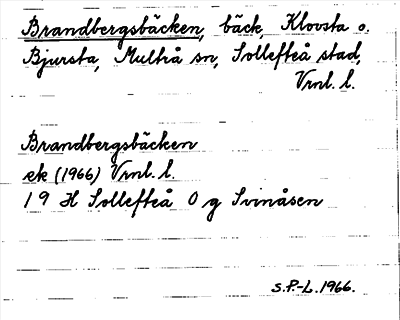 Brandbergsbäcken, bäck, Klovsta o.
Bjursta, Multrå sn, Sollefteå stad,
Vrnl. l.
Brandbergsbäcken
ek (1966) Vrnl. l.
19 H Sollefteå O g Svinåsen
S.P.-L. 1966.